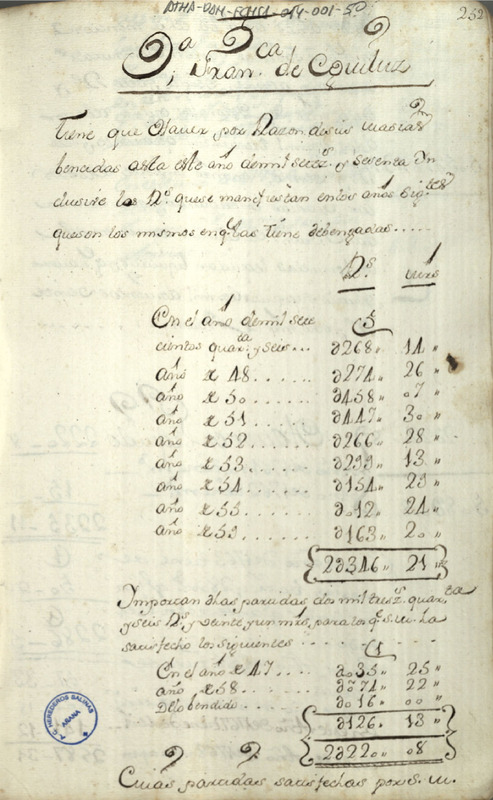 ATHA-DAH-FCHSA-014-001-50
252
D.ª Fran.ca de Eguiluz
Tiene que Haver, por Razon de sus
bencidas asta este año de mil setez.s y sesenta In
clusive los D.s que se manifiestan en los años sig.tes
que son los mismos en q. las tiene debengadas.....
D.s mrs
En el año de mil sete
cientos quar.ta y seis... ∂268,, 14,,
año de 48....... ∂274,, 26,,
año de 50....... ∂458,, 07,,
año de 51....... ∂447,, 30,,
año de 52....... ∂266,, 28,,
año de 53....... ∂299,, 13,,
año de 54....... ∂154,, 29,,
año de 55....... ∂012,, 24,,
año de 59....... ∂163,, 20,,
2∂346,, 21,,
Importan dhas partidas dos mil tresz.s quar.ta
y seis D.s y veinte y un mrs, para los q.e S. M. ha
satisfecho los siguientes
En el año de 47..... ∂035,, 25,,
año de 58....... ∂074,, 22,,
∂016,, 00,,
∂126,, 13,,
2∂220,, 08,,
Cuias partidas satisfechas por S. M.
A. C. HEREDEROS SALINAS
ARANA